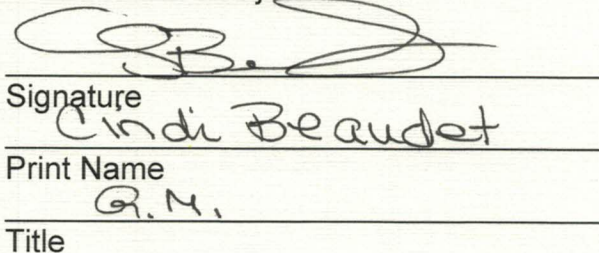 Signature
Cindi Beaudet
Print Name
G.M.
Title